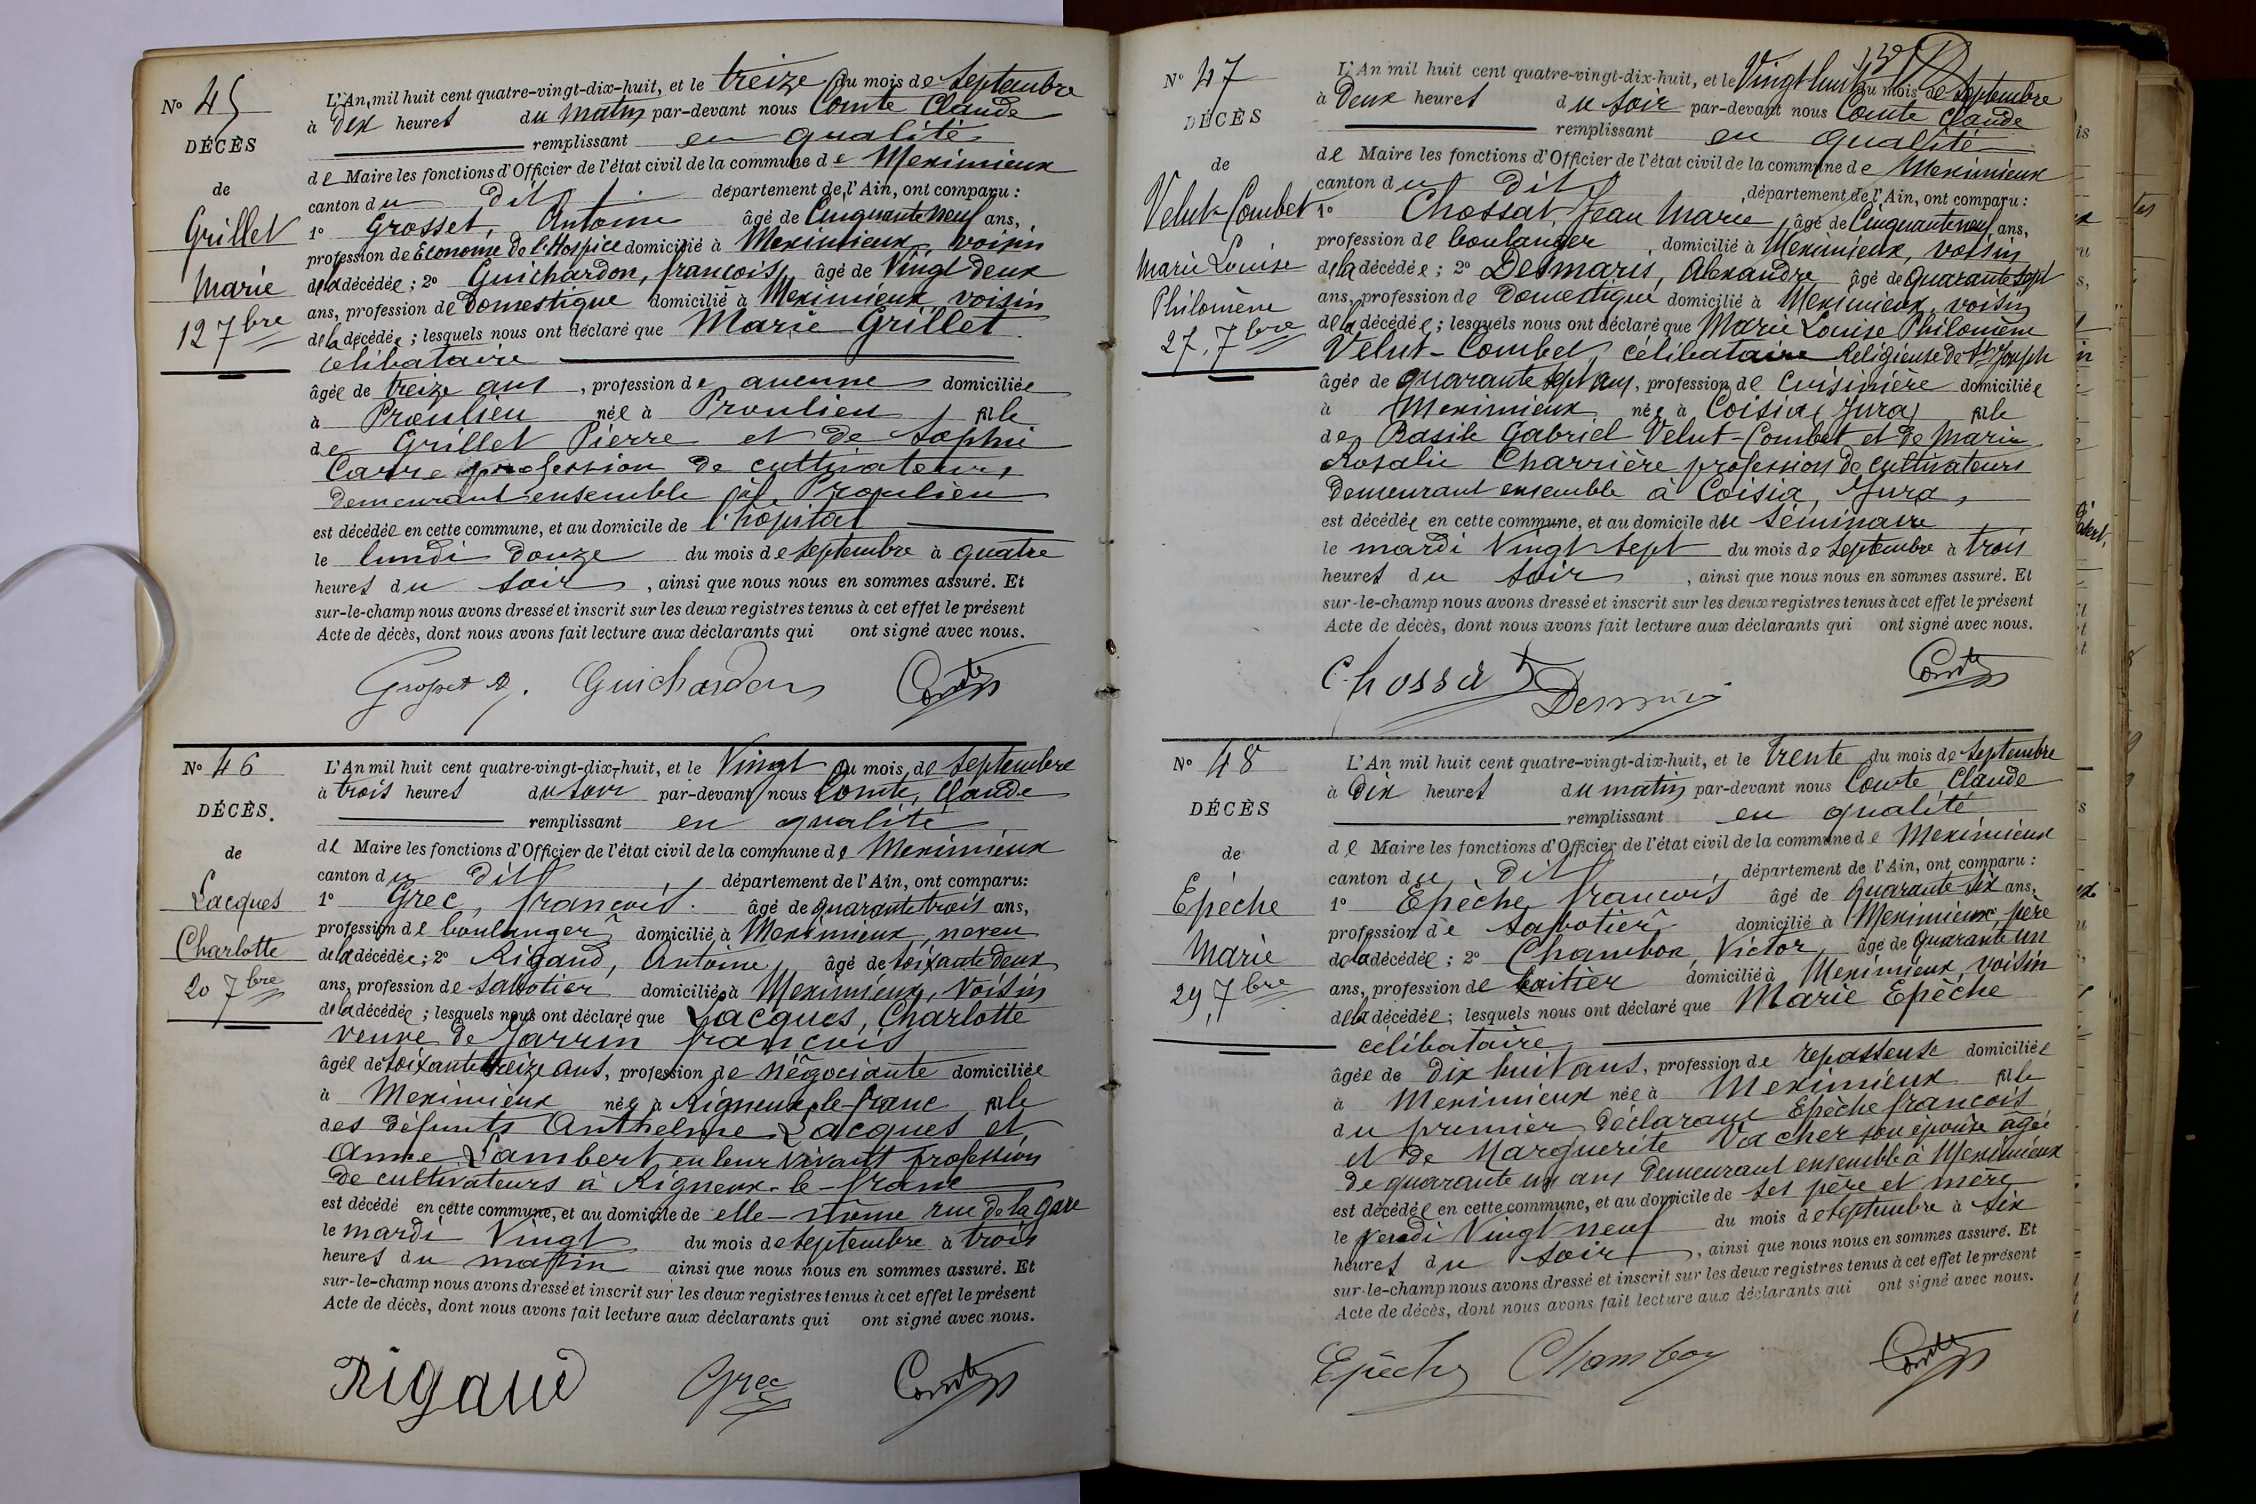 N° 45
DÉCÈS
de
Grillet
Marie
12 7bre
L'An mil huit cent quatre-vingt-dix-huit, et le treize du mois de Septembre
à dix heures du matin par-devant nous Comte Claude
remplissant en qualité
de Maire les fonctions d'Officier de l'état civil de la commune de Meximieux
canton du dit département de l'Ain, ont comparu :
1° Grosset, Antoine âgé de Cinquante neuf ans,
profession de Econome de l'Hospice domicilié à Meximieux, voisin
de la décédée ; 2° Guichardon, françois, âgé de Vingt deux
ans, profession de Domestique domicilié à Meximieux, voisin
de la décédée ; lesquels nous ont déclaré que Marie Grillet
célibataire
âgée de treize ans, profession de aucune domiciliée
à Proulieu née à Proulieu, fille
de Grillet Pierre et de Sophie
Carre profession de cultivateurs,
demeurant ensemble à Proulieu
est décédée en cette commune, et au domicile de l'hôpital
le lundi douze du mois de septembre à quatre
heures du soir, ainsi que nous nous en sommes assuré. Et
sur-le-champ nous avons dressé et inscrit sur les deux registres tenus à cet effet le présent
Acte de décès, dont nous avons fait lecture aux déclarants qui ont signé avec nous.
Grosset A. Guichardon Comte
N° 46
DÉCÈS.
de
Lacques
Charlotte
20 7bre
L'An mil huit cent quatre-vingt-dix-huit, et le Vingt du mois de Septembre
à trois heures du soir par-devant nous Comte, Claude
remplissant en qualité
de Maire les fonctions d'Officier de l'état civil de la commune de Meximieux
canton du dit, département de l'Ain, ont comparu:
1° Grec, françois. âgé de quarante trois ans,
profession de boulanger domicilié à Meximieux, neveu
de la décédée; 2° Rigaud, Antoine, âgé de soixante deux
ans, profession de sabotier domicilié à Meximieux, Voisin
de la décédée ; lesquels nous ont déclaré que Lacques, Charlotte
veuve de Jarrin françois
âgée de soixante treize ans, profession de négociante domiciliée
à Meximieux née à Rigneux-le-franc fille
des défunts Anthelme Lacques et
Anne Lambert en leur vivant profession
de cultivateurs à Rigneux-le-franc
est décédé en cette commune, et au domicile de elle-même rue de la gare
le mardi Vingt du mois de septembre à trois
heures du matin ainsi que nous nous en sommes assuré. Et
sur-le-champ nous avons dressé et inscrit sur les deux registres tenus à cet effet le présent
Acte de décès, dont nous avons fait lecture aux déclarants qui ont signé avec nous.
Rigaud Grec Comte
N° 47
DÉCÈS
de
Velut-Combet
Marie Louise
Philomène
27, 7bre
L'An mil huit cent quatre-vingt-dix-huit, et le Vingt huit du mois de Septembre
à Deux heures du soir par-devant nous Comte Claude
remplissant en qualité
de Maire les fonctions d'Officier de l'état civil de la commune de Meximieux
canton du dit, département de l'Ain, ont comparu :
1° Chossat, Jean Marie, âgé de Cinquante neuf ans,
profession de boulanger, domicilié à Meximieux, voisin
de la décédée ; 2° Desmaris, Alexandre âgé de quarante sept
ans, profession de Domestique domicilié à Meximieux, voisin
de la décédée ; lesquels nous ont déclaré que Marie Louise Philomène
Velut-Combet, célibataire Religieuse de St Joseph
âgée de quarante sept ans, profession de Cuisinière domiciliée
à Meximieux née à Coisia (Jura) fille
de Basile Gabriel Velut-Combet et de Marie
Rosalie Charrière profession de cultivateurs
demeurant ensemble à Coisia, Jura,
est décédée en cette commune, et au domicile du Séminaire
le mardi Vingt sept du mois de septembre à trois
heures du soir, ainsi que nous nous en sommes assuré. Et
sur-le-champ nous avons dressé et inscrit sur les deux registres tenus à cet effet le présent
Acte de décès, dont nous avons fait lecture aux déclarants qui ont signé avec nous.
Chossat Comte
N° 48
DÉCÈS
de
Epèche
Marie
29, 7bre
L'An mil huit cent quatre-vingt-dix-huit, et le trente du mois de Septembre
à dix heures du matin par-devant nous Comte Claude
remplissant en qualité
de Maire les fonctions d'Officier de l'état civil de la commune de Meximieux
canton du dit, département de l'Ain, ont comparu :
1° Epèche, françois, âgé de quarante six ans,
profession de sabotier domicilié à Meximieux père
de la décédée ; 2° Chambon, Victor, âgé de quarante un
ans, profession de laitier domicilié à Meximieux, voisin
de la décédée; lesquels nous ont déclaré que Marie Epèche
célibataire
âgée de dix huit ans, profession de repasseuse domiciliée
à Meximieux née à Meximieux fille
du premier déclarant Epèche françois
et de Marguerite Vacher son épouse âgée
de quarante un ans demeurant ensemble à Meximieux
est décédée en cette commune, et au domicile de ses père et mère
le jeudi Vingt neuf du mois de septembre à six
heures du soir, ainsi que nous nous en sommes assuré. Et
sur-le-champ nous avons dressé et inscrit sur les deux registres tenus à cet effet le présent
Acte de décès, dont nous avons fait lecture aux déclarants qui ont signé avec nous.
Epèche Comte